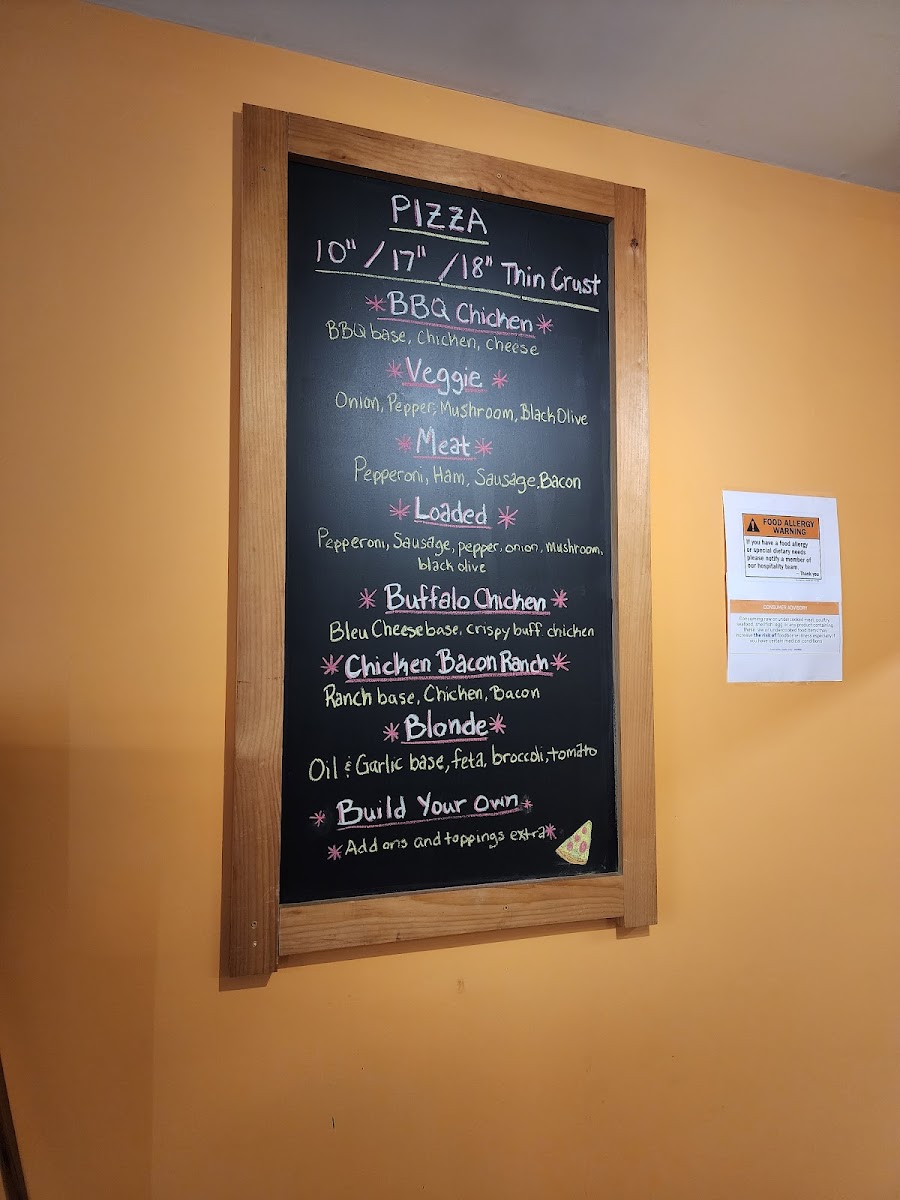 PIZZA
10" / 17" / 18" Thin Crust
*BBQ Chicken*
BBQ base, Chicken, cheese
*Veggie*
Onion, Pepper, Mushroom, Black Olive
*Meat*
Pepperoni, Ham, Sausage, Bacon
*Loaded*
Pepperoni, Sausage, pepper, onion, mushroom,
black olive
*Buffalo Chicken*
Bleu Cheese base, crispy buff chicken
*Chicken Bacon Ranch*
Ranch base, Chicken, Bacon
*Blonde*
Oil & Garlic base, feta, broccoli, tomato
*Build Your Own*
*Add ons and toppings extra*
FOOD ALLERGY
WARNING
If you have a food allergy
or special dietary needs
please notify a member of
our hospitality team.
- Thank you
CONSUMER ADVISORY
Consuming raw or undercooked meat, poultry,
seafood, shellfish, eggs
increase the risk of foodborne illness especially if
you have certain medical conditions